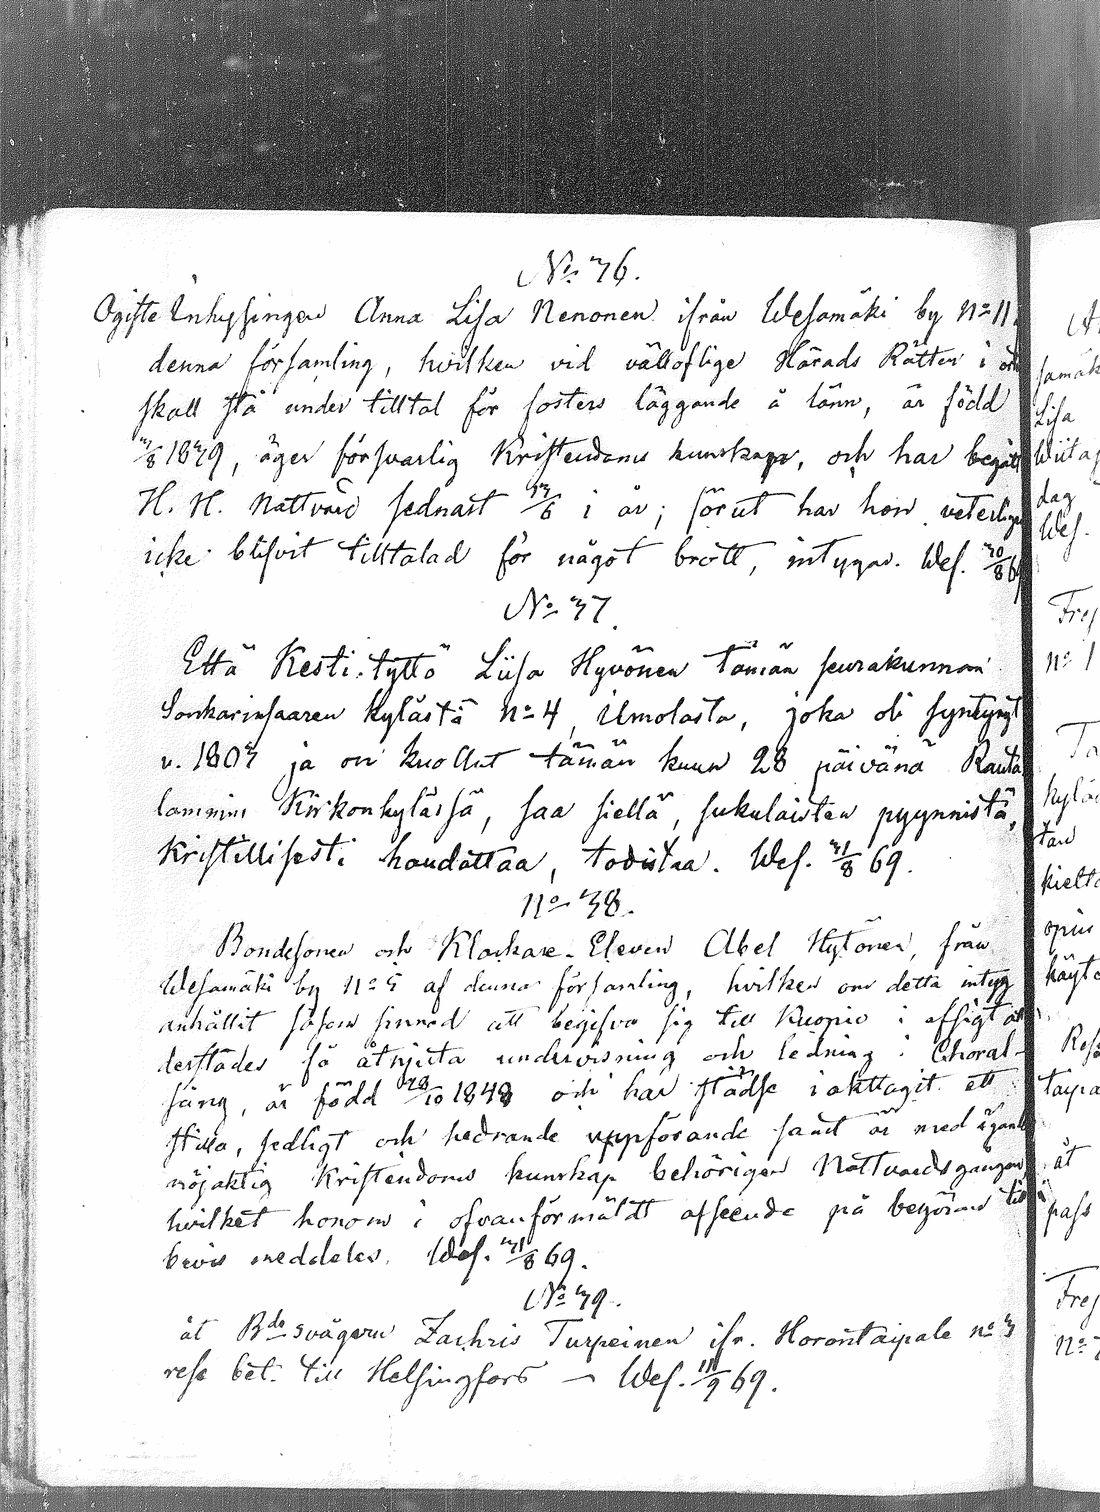 No 36.
Ogifte Inhysingen Anna Lisa Nenonen ifrån Wesamäki by No 11,
denna församling, hvilken vid välloflige Härads Rätten i
skall stå under tilltal för fosters läggande å lönn, är född
1839, äger försvarlig Kristendoms kunskap, och har begått
H. H. Nattvard sednast i år; förut har hon veterligen
icke blifvit tilltalad för något brott, intygar. Wes. 30/8 69
No 37.
Että Kesti-tyttö Liisa Hyvönen tämän seurakunnan
Sonkarinsaaren kylästä No 4, Umolasta, joka oli syntynyt
v. 1803 ja on kuollut tämän kuun 28 päivänä Rauta
lammin Kirkonkylässä, saa siellä, sukulaisten pyynnistä,
Kristillisesti haudattaa, todistaa. Wes. 31/8 69.
No 38.
Bondesonen och Klockare-Eleven Abel Hytönen, från
Wesamäki by No 5 af denna församling, hvilken om detta intyg
anhållit såsom sinnad att begifva sig till Kuopio i afsigt att
derstädes få åtnjuta undervisning och ledning i Choral-
sång, är född 28/10 1848 och har städse iakttagit ett
stilla, sedligt och hedrande uppförande samt är med ägande
nöjaktig Kristendoms kunskap behörigen Nattvardsgången
hvilket honom i ofvanförmäldt afseende på begäran till
bevis meddelas. Wes. 31/8 69.
No 39.
åt Bde svågern Zachris Turpeinen ifr. Horontaipale No 3
rese bet. till Helsingfors — Wes. 11/9 69.
samäk
Lisa
Wiita
dag
Wes.
Fres
No 1
Ta
kylä
tan
kielt
opin
käyt
taipa
åt
pass
Fres
No